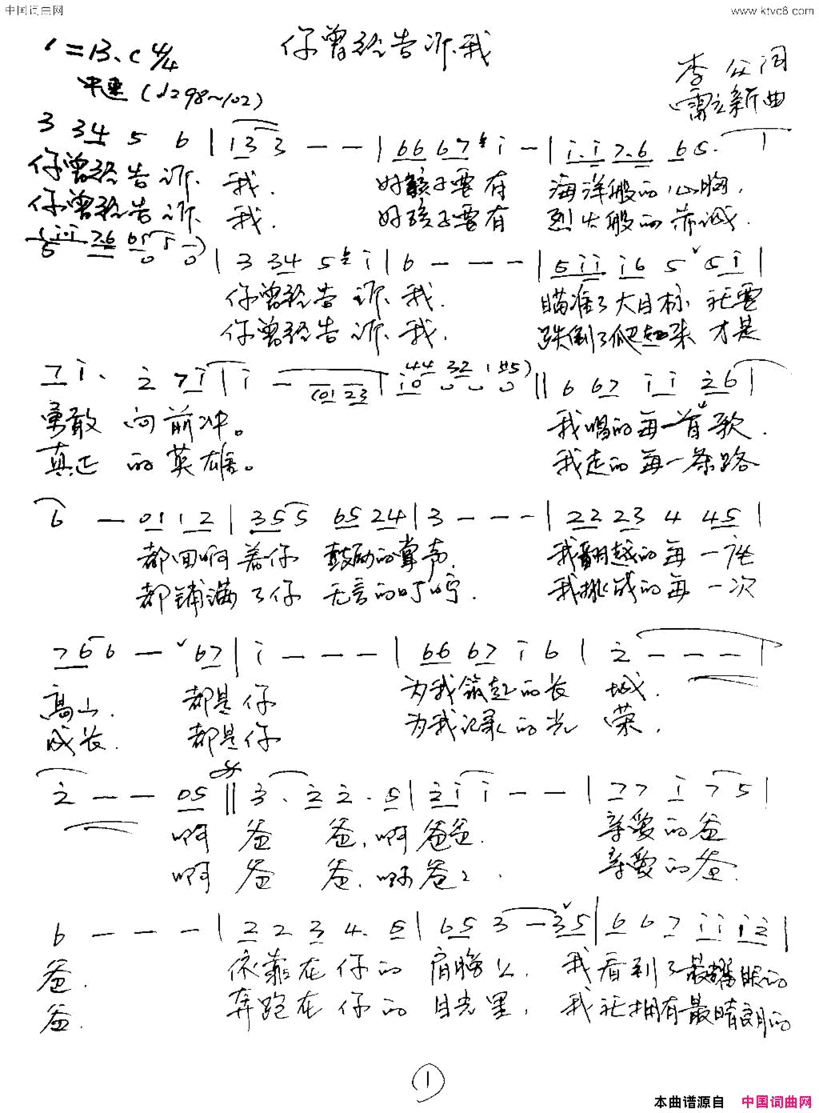 中国词曲网
www.ktvc8.com
你曾经告诉我
1=B、C 4/4
中速(♩=98~102)
李 众 词
雷立新 曲
3 34 5 6 | 133 - - | 66 67 i - | i.i 7.6 65. |
你曾经告诉 我. 好孩子要有 海洋般的心胸,
你曾经告诉 我. 好孩子要有 烈火般的赤诚.
| 3 34 5 i | 6 - - - | 5ii i6 5 5i |
你曾经告诉 我. 瞄准了大目标 就要
你曾经告诉 我. 跌倒了爬起来 才是
勇敢 向前冲。 我唱的每一首歌.
真正 的英雄。 我走的每一条路
6 - 01 12 | 355 65 24 | 3 - - - | 22 23 4 45 |
都回响着你 鼓励的掌声. 我翻越的每一座
都铺满了你 无言的叮咛. 我挑战的每一次
766 - 67 | i - - - | 66 67 i 6 | 2 - - - |
高山. 都是你 为我筑起的长 城.
成长. 都是你 为我记录的光 荣.
2 - - 05 || 3. 22. 5 | 2i i - - | 77 i 75 |
啊 爸 爸,啊爸爸. 亲爱的爸
啊 爸 爸. 啊爸爸. 亲爱的爸.
6 - - - | 2 2 3 4. 5 | 65 3 - 35 | 6 6 7 ii i2 |
爸. 依靠在你的肩膀上. 我看到了最耀眼的
爸. 奔跑在你的目光里, 我就拥有最晴朗的
1
本曲谱源自 中国词曲网